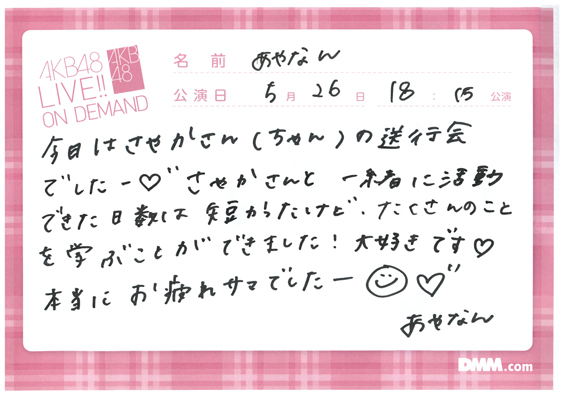 AKB48
LIVE!!
ON DEMAND
AKB
48
名前 あやなん
公演日 5月26日 18:15公演
今日はさやかさん(ちゃん)の送行会
でしたー♡ さやかさんと 一緒に活動
できた日数は短かったけど、たくさんのこと
を学ぶことができました！大好きです♡
本当にお疲れサマでしたー☺♡
あやなん
DMM.com